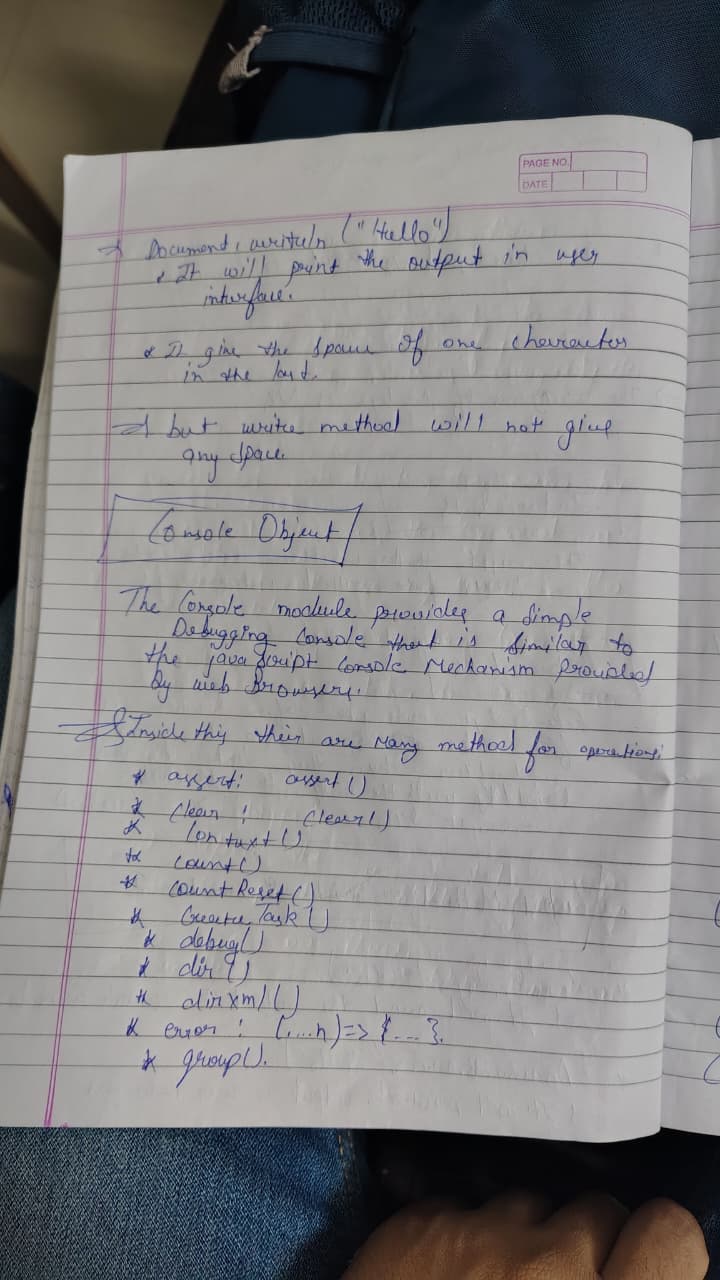 PAGE NO.
DATE
Document, writeln ("Hello")
It will print the output in user
interface.
It give the space of one charactor
in the last.
but write method will not give
any space.
Console Object
The Console module provides a Simple
Debugging Console that is Similar to
the java Script Console Mechanism Provided
By web Browsers.
Inside this their are Many method for operations:
* assert: assert ()
* Clear : Clear()
* Context ()
* Count ()
* Count Reset ()
* Create Task ()
* debug()
* dir ()
* dirxml ()
* error : (....n) => {...}.
* group().